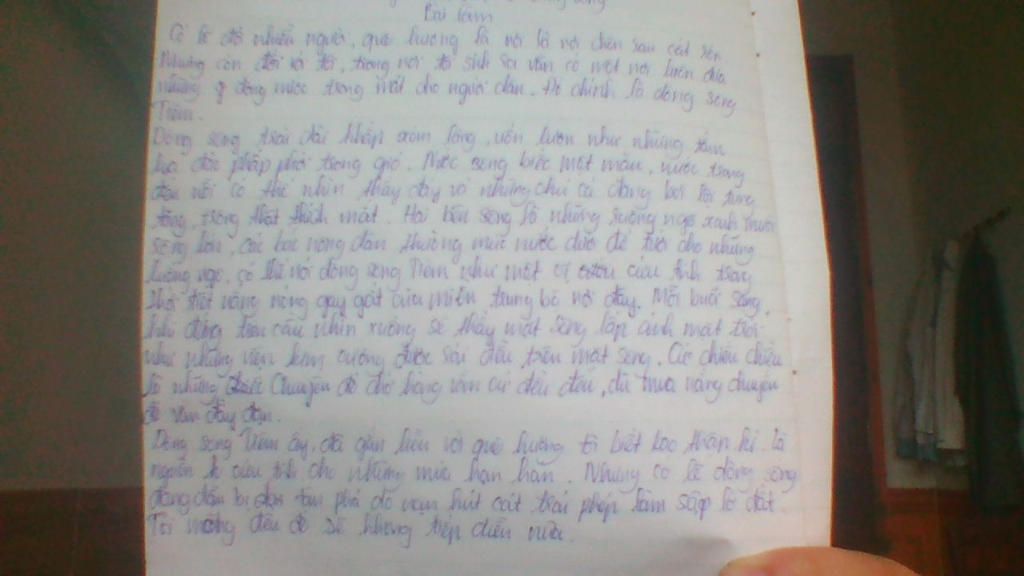 Bài làm
Có lẽ đối nhiều người, quê hương là nơi là nơi chôn rau cắt rốn
Nhưng còn đối với tôi, trong nơi tôi sinh ra vẫn có một nơi luôn đưa
những dòng nước trong mát cho người dân. Đó chính là dòng sông
Tiêm.
Dòng sông trải dài khắp xóm làng, uốn lượn như những tấm
lụa đào phấp phới trong gió. Nước sông biếc một màu, nước trong
đến nỗi có thể nhìn thấy đáy và những chú cá đang bơi lội tung
tăng, trông thật thích mắt. Hai bên sông là những ruộng ngô xanh mướt
rộng lớn, các bác nông dân thường múc nước dưới để tưới cho những
luống ngô, có thể nói dòng sông Tiêm như một vị cứu tinh trong
thời tiết nắng nóng gay gắt của miền trung bộ nơi đây. Mỗi buổi sáng,
khi đứng trên cầu nhìn xuống sẽ thấy mặt sông lấp lánh mặt trời
như những viên kim cương được rải đều trên mặt sông. Cứ chiều chiều
là những chuyến đò chở hàng vẫn cứ đều đều, dù mưa nắng chuyến
đò vẫn đầy đặn.
Dòng sông Tiêm ấy, đã gắn liền với quê hương tôi biết bao thập kỉ. Là
nguồn cứu tinh cho những mùa hạn hán. Nhưng có lẽ dòng sông
đang dần bị tàn phá do nạn hút cát trái phép làm sập lở đất.
Tôi mong điều đó sẽ không tiếp diễn nữa.